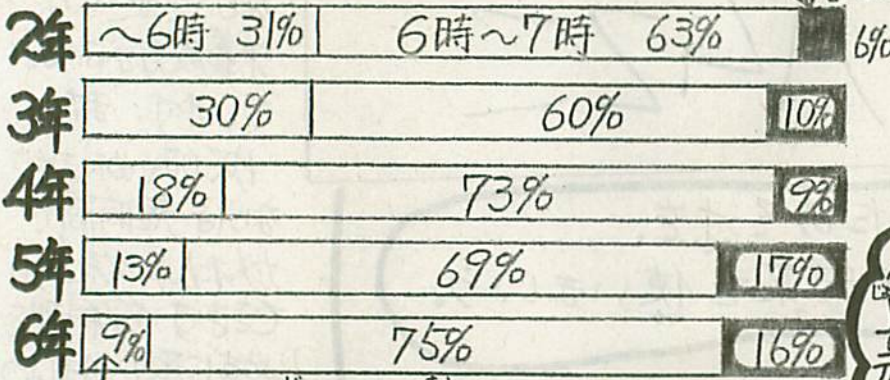 2年 ～6時 31% 6時～7時 63% 6%
3年 30% 60% 10%
4年 18% 73% 9%
5年 13% 69% 17%
6年 9% 75% 16%